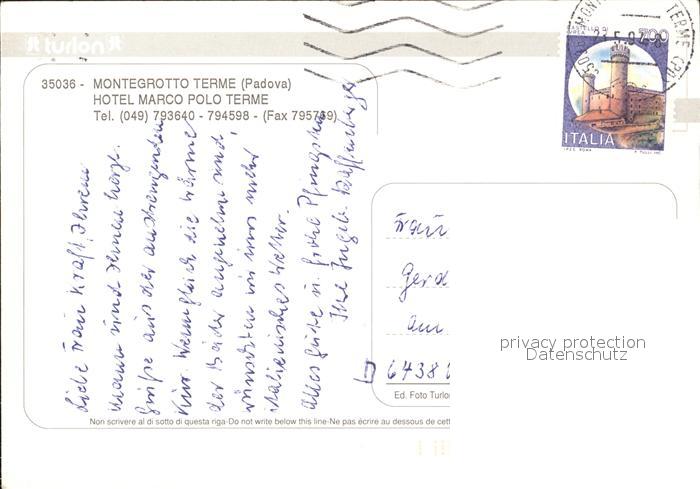 turlon
35036 - MONTEGROTTO TERME (Padova)
HOTEL MARCO POLO TERME
Tel. (049) 793640 - 794598 - (Fax 795759)
Liebe Frau Kraft, Ihrem
Mann und Ihnen herzl.
Grüße aus der anstrengenden
Kur. Wenngleich die Wärme
der Bäder angenehm sind,
wünschten wir uns mehr
italienisches Wetter.
Alles Gute u. frohe Pfingsten
Ihre Ingeb.
700
ITALIA
I.P.Z.S. ROMA
TERME
Frau
Gerd
am
D 6438
privacy protection
Datenschutz
Ed. Foto Turlon
Non scrivere al di sotto di questa riga-Do not write below this line-Ne pas écrire au dessous de cett